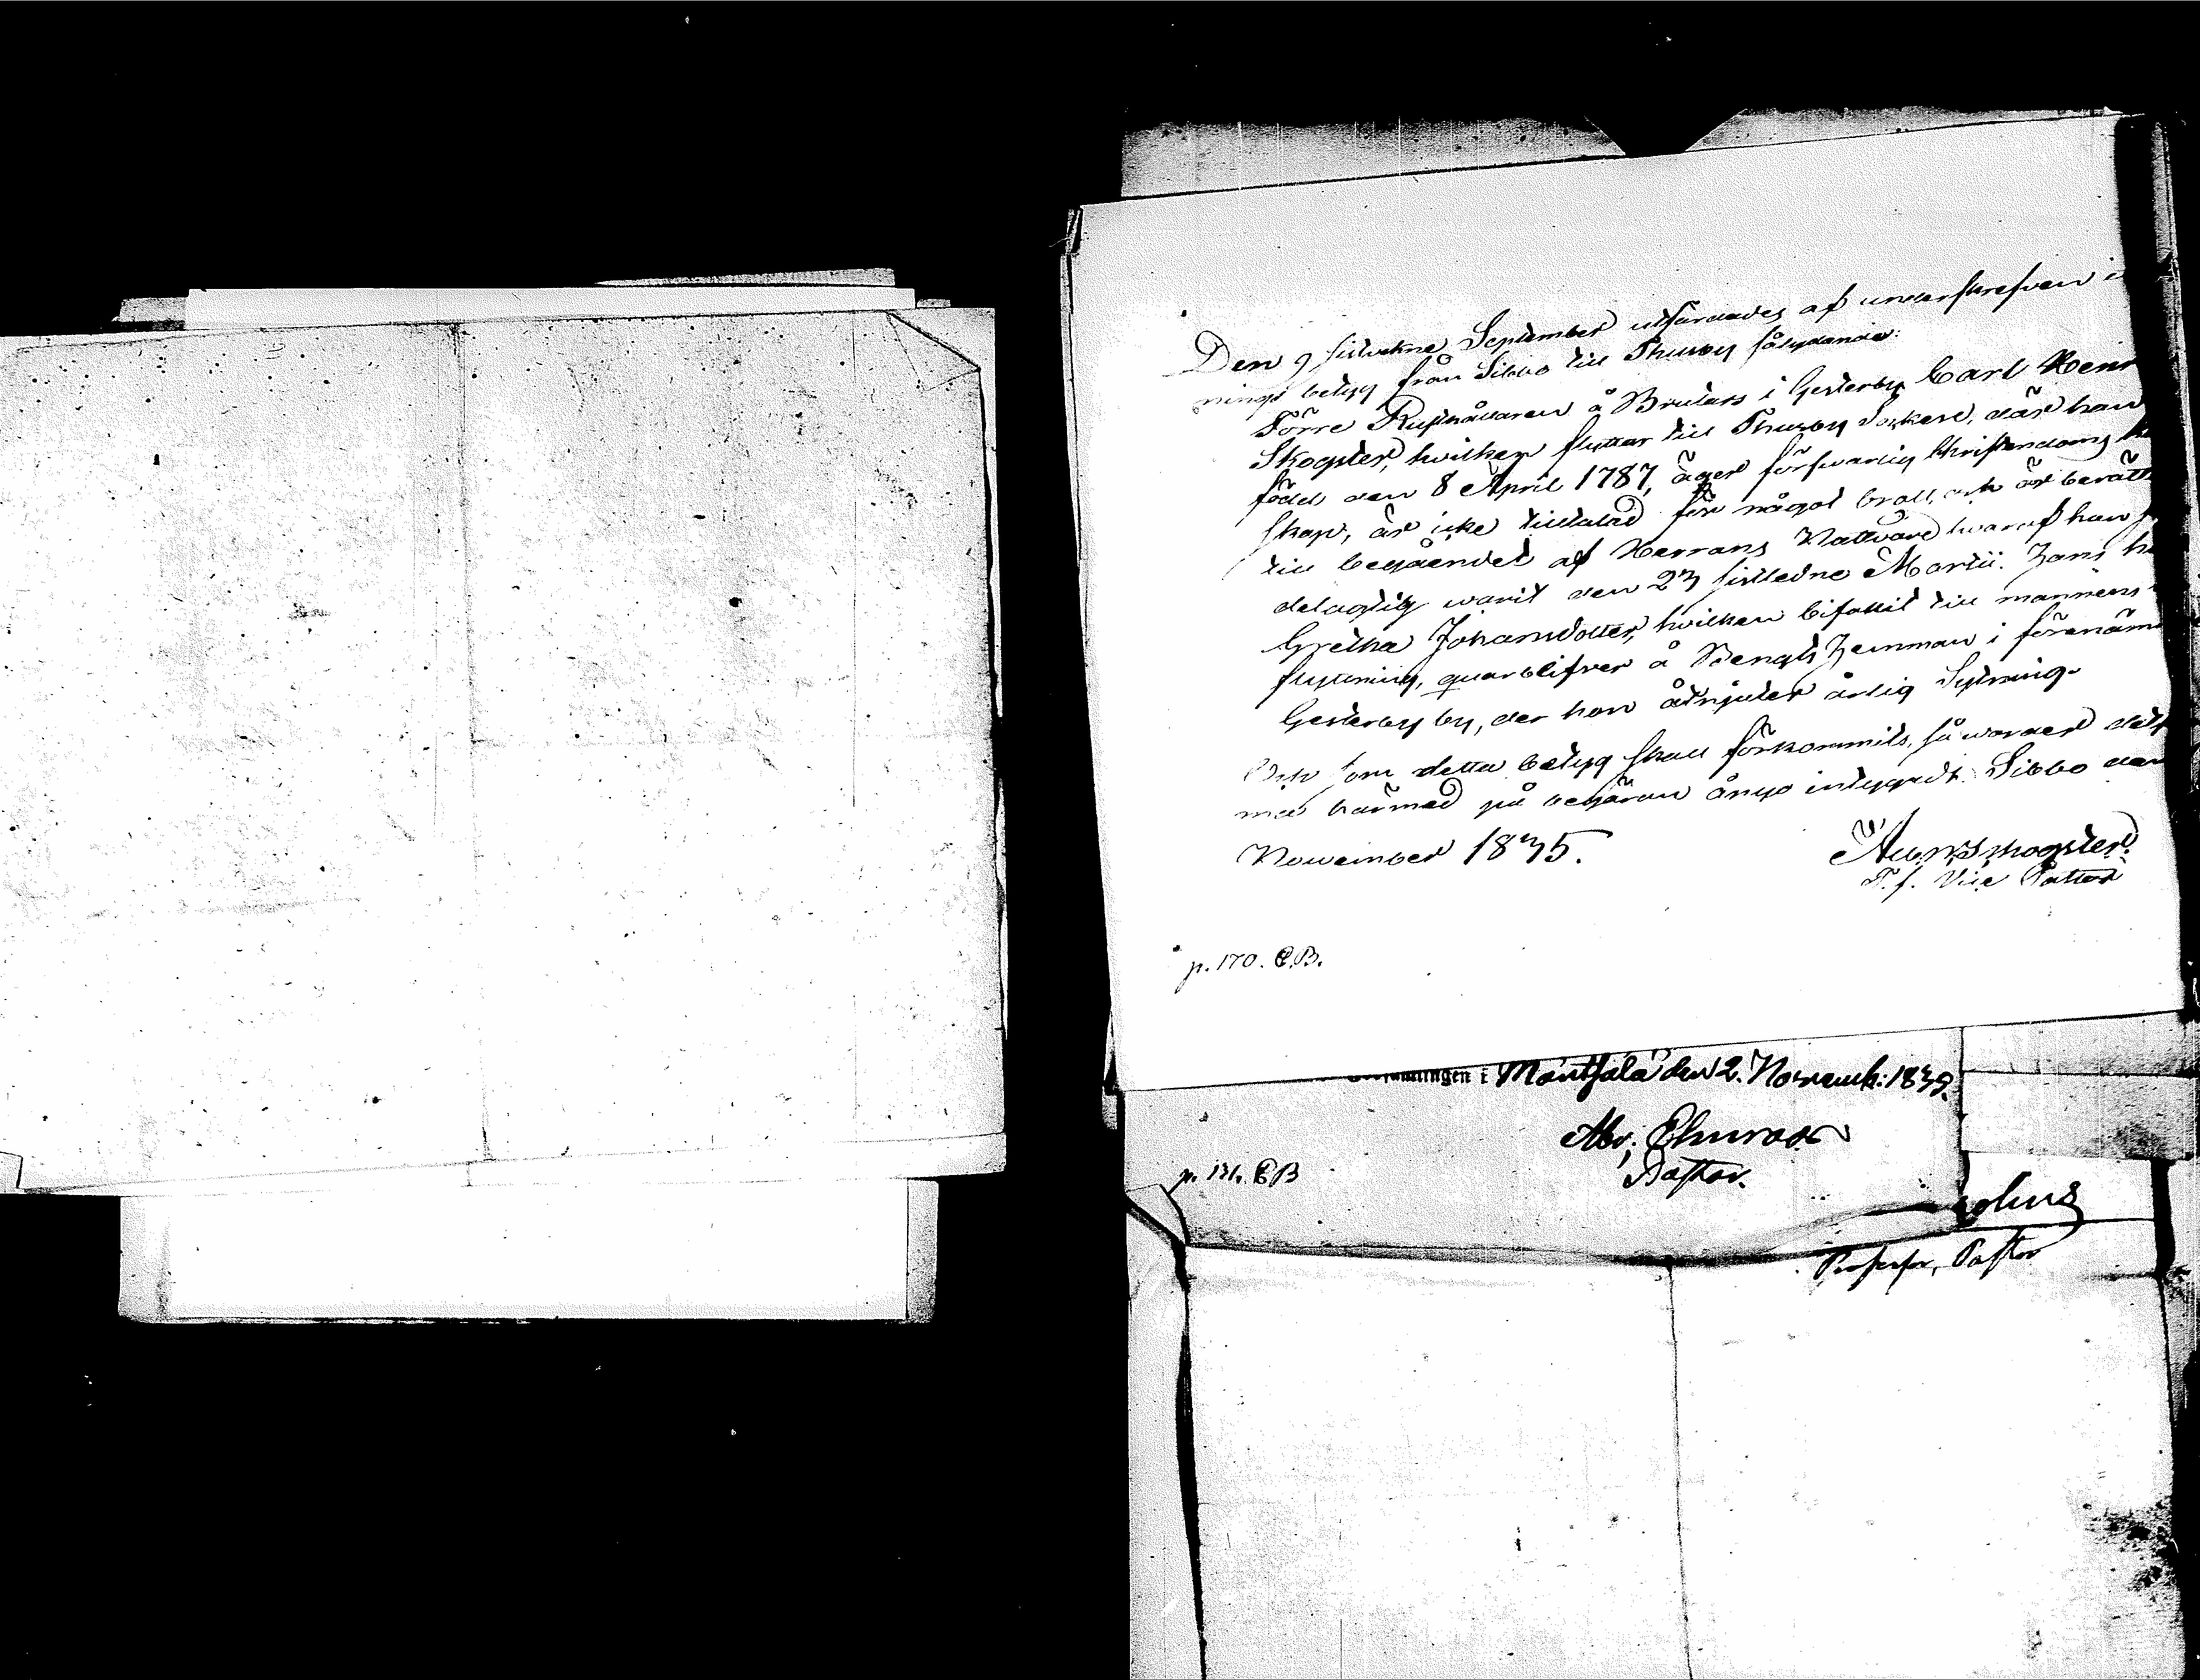 Den 9 sistvekne September utfärdades af underskrefven
nings betyg från Sibbo till Thusby sålydande:
Förre Rusthållaren å Brutars i Gesterby Carl Henr
Skogster, hvilken flyttar till Thusby Socken, där han
född den 8 April 1787, äger försvarlig Christendoms
skap, är icke tilltalad för något brott, och är berätt
till begåendet af Herrans Nattvard hvaraf han
delagtig warit den 23 sistledne Martii. Hans
Gretha Johansdotter, hvilken bifallit till mannens
flyttning, quarblifver å Bengts Hemman i förenäm
Gesterby by, der hon åtnjuter årlig Sytning.
Och som detta betyg skall förkommits, så warder
med härmed på begäran ånyo intygadt. Sibbo den
November 1835.
Skogster.
T. f. Vice Pastor
p. 170. C.B.
församlingen i Mäntsälä den 2. Novemb: 1835.
Pastor.
p. 131. CB
Professor, Pastor